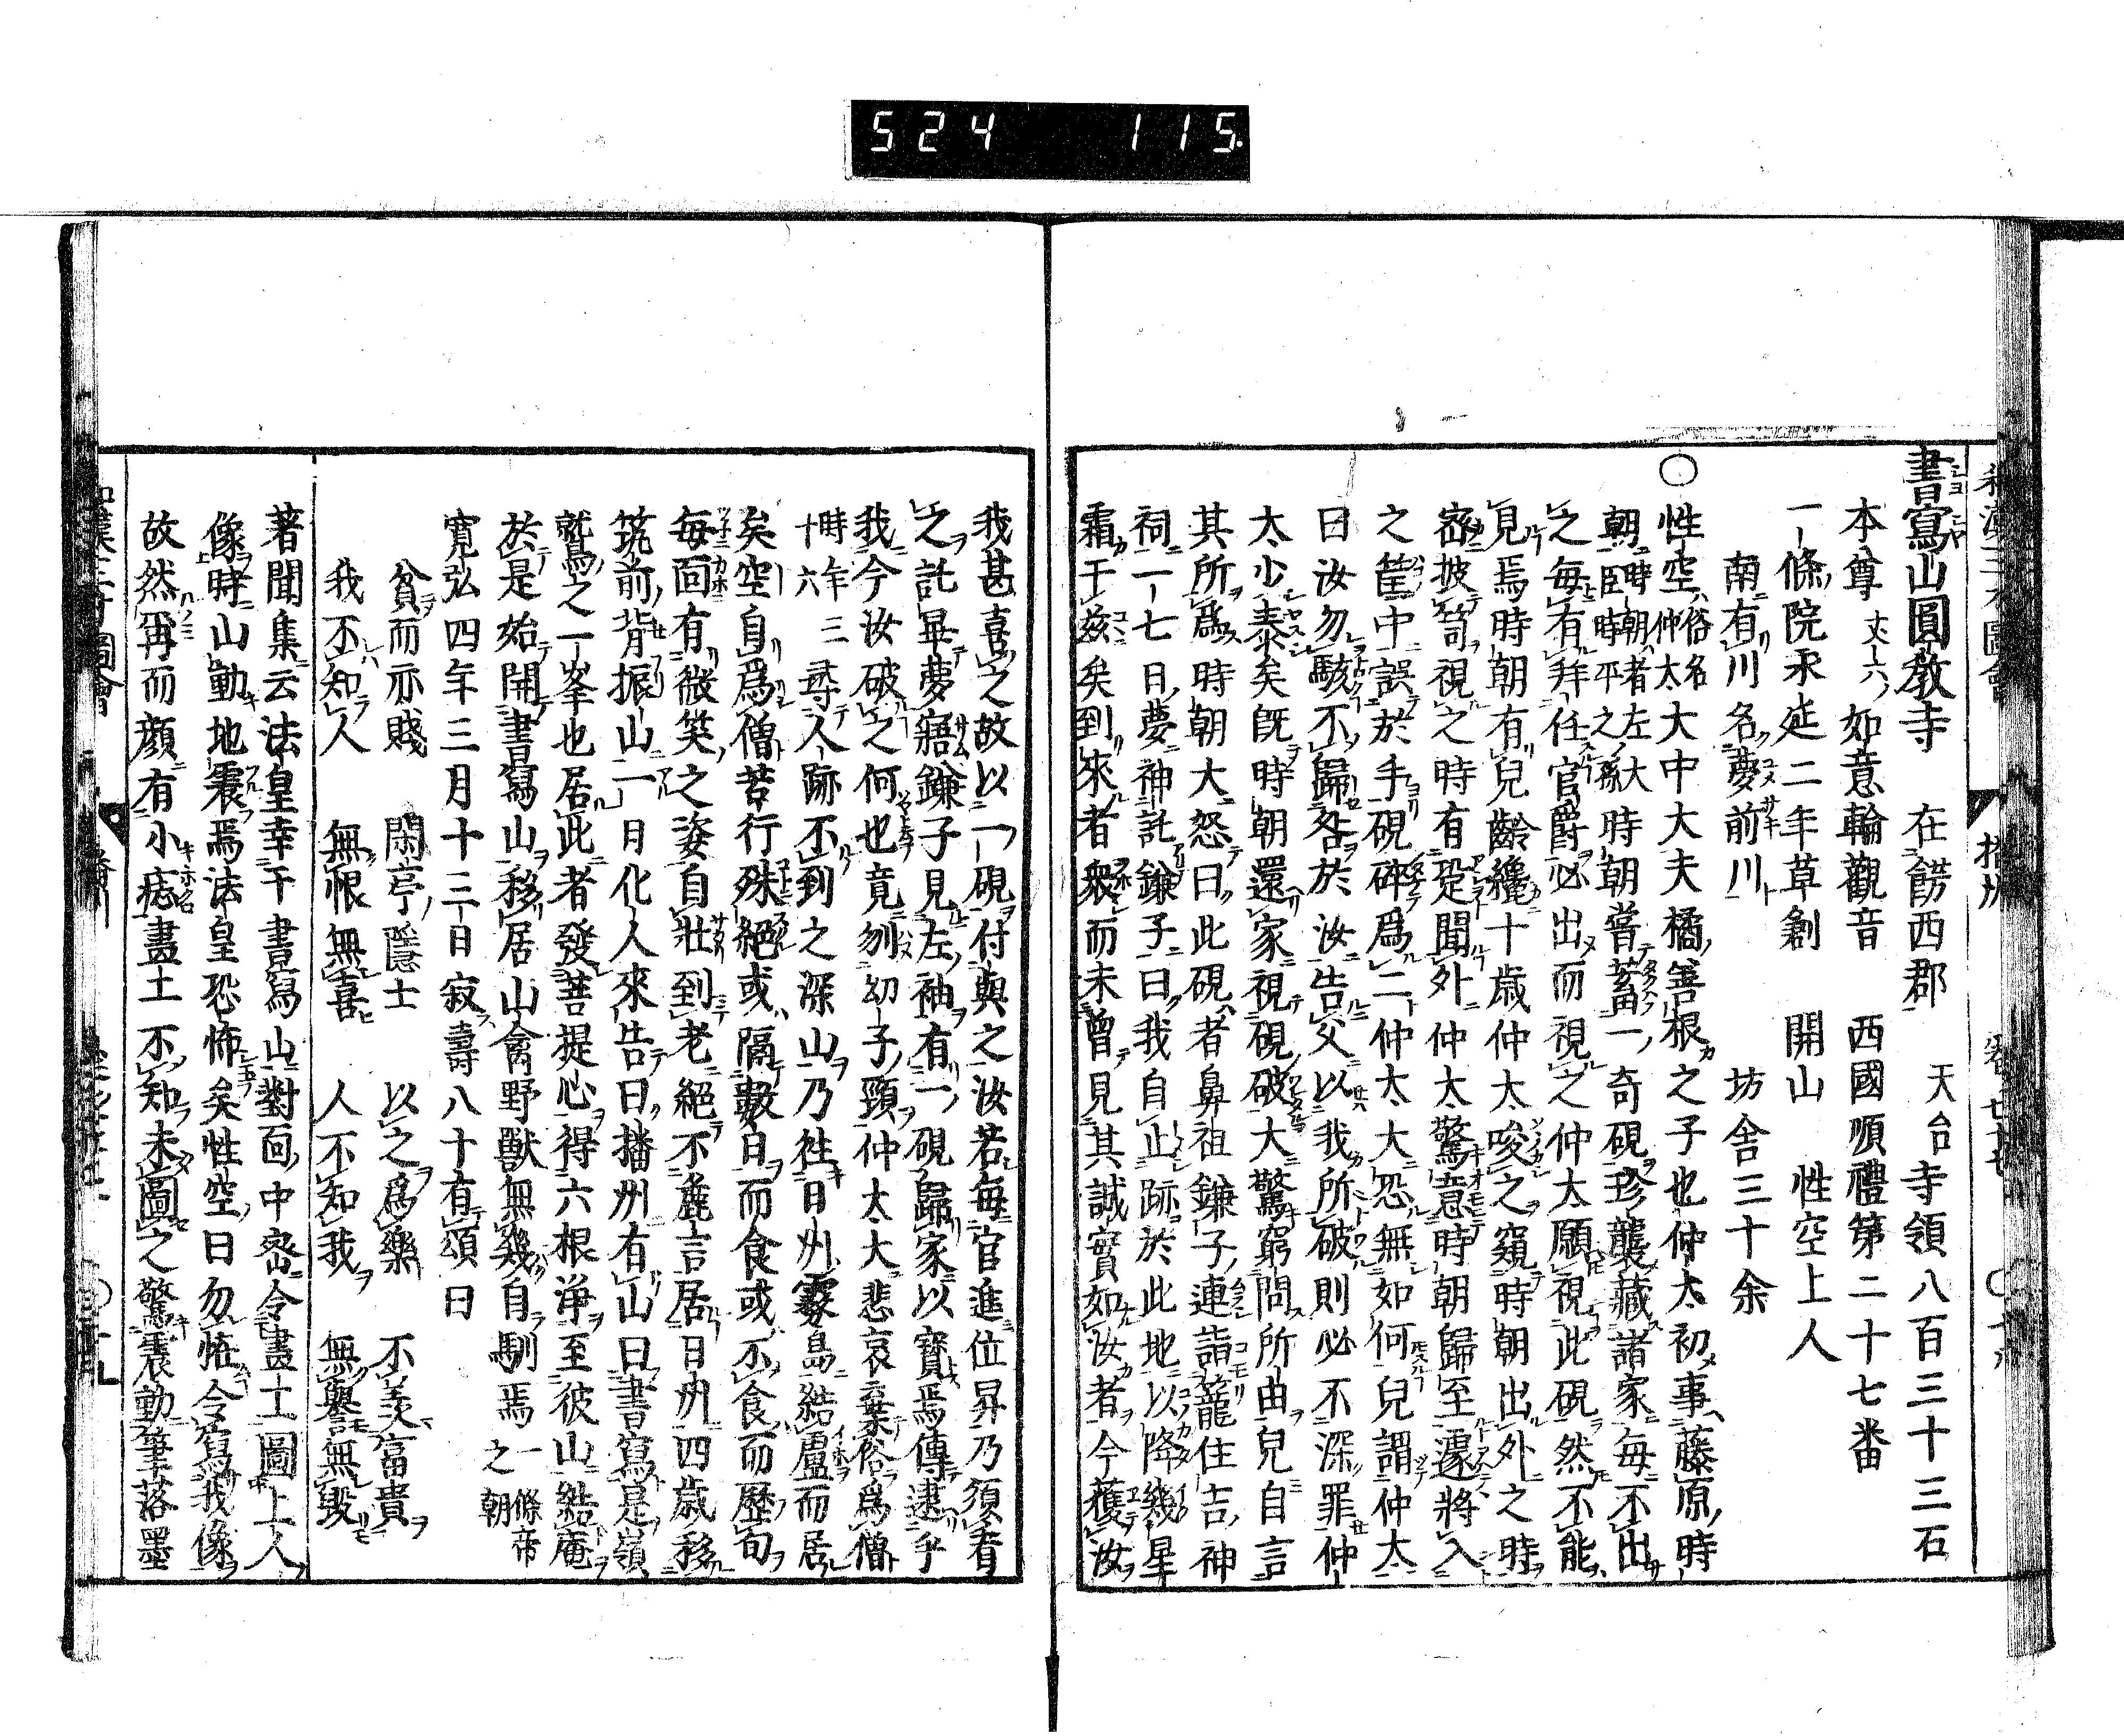 524 115.
書寫山圓教寺 在餝西郡 天台 寺領八百三十三石
本尊 丈六 如意輪觀音 西國順禮第二十七番
一條院永延二年草創 開山 性空上人
南有川名夢前川 坊舍三十余
○
性空 俗名仲太 大中大夫橘善根之子也仲太初事藤原時
朝 時朝者左大臣時平之㣧 時朝嘗蓄一奇硯珍襲藏諸家每不出
之每有拜任官爵必出而視之仲太願視此硯然不能
見焉時朝有兒齡纔十歲仲太唆之窺時朝出外之時
密披笥視之時有跫聞外仲太驚意時朝歸至遽將入
之筐中誤於手硯碎爲二仲太大恐無如何兒謂仲太
曰汝勿駭不歸咎於汝告父以我所破則必不深罪仲
太少泰矣既時朝還家視硯破大驚窮問所由兒自言
其所爲時朝大怒曰此硯者鼻祖鎌子連詣籠住吉神
祠一七日夢神託鎌子曰我自止跡於此地以降幾星
霜于茲矣到來者衆而未曾見其誠實如汝者今獲汝
我甚喜之故以一硯付與之汝若每官進位昇乃須看
之託畢夢寤鎌子見左袖有一硯歸家以寶焉傳逮乎
我今汝破之何也竟刎幼子頸仲太大悲哀棄俗爲僧
時年三十六 尋人跡不到之深山乃徃日州霧島結盧而居
矣空自爲僧苦行殊絕或隔數日而食或不食而歷旬
每面有微笑之姿自壯到老絕不麁言居日州四歲移
筑前背振山一日化人來告曰播州有山曰書寫是嶺
鷲之一峯也居此者發菩提心得六根淨至彼山結庵
於是始開書寫山移居山禽野獸無幾自馴焉 一條帝之朝
寬弘四年三月十三日寂壽八十有頌曰
貧而亦賤 閑亭隱士 以之爲樂 不羨富貴
我不知人 無恨無喜 人不知我 無譽無毀
著聞集云法皇幸于書寫山對面中密令畫工圖上人
像時山動地震焉法皇恐怖矣性空曰勿怪令寫我像
故然再而顏有小痣畫工不知未圖之驚震動筆落墨